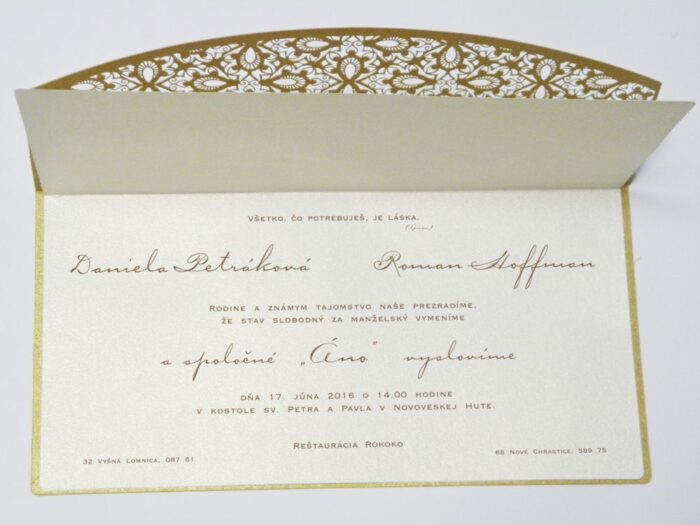 Všetko, čo potrebuješ, je láska.
(Lennon)
Daniela Petráková Roman Hoffman
Rodine a známym tajomstvo naše prezradíme,
že stav slobodný za manželský vymeníme
a spoločné „Áno" vyslovíme
dňa 17. júna 2016 o 14.00 hodine
v kostole sv. Petra a Pavla v Novoveskej Hute.
Reštaurácia Rokoko
32 Vyšná Lomnica, 087 61
68 Nové Chrastice, 589 75